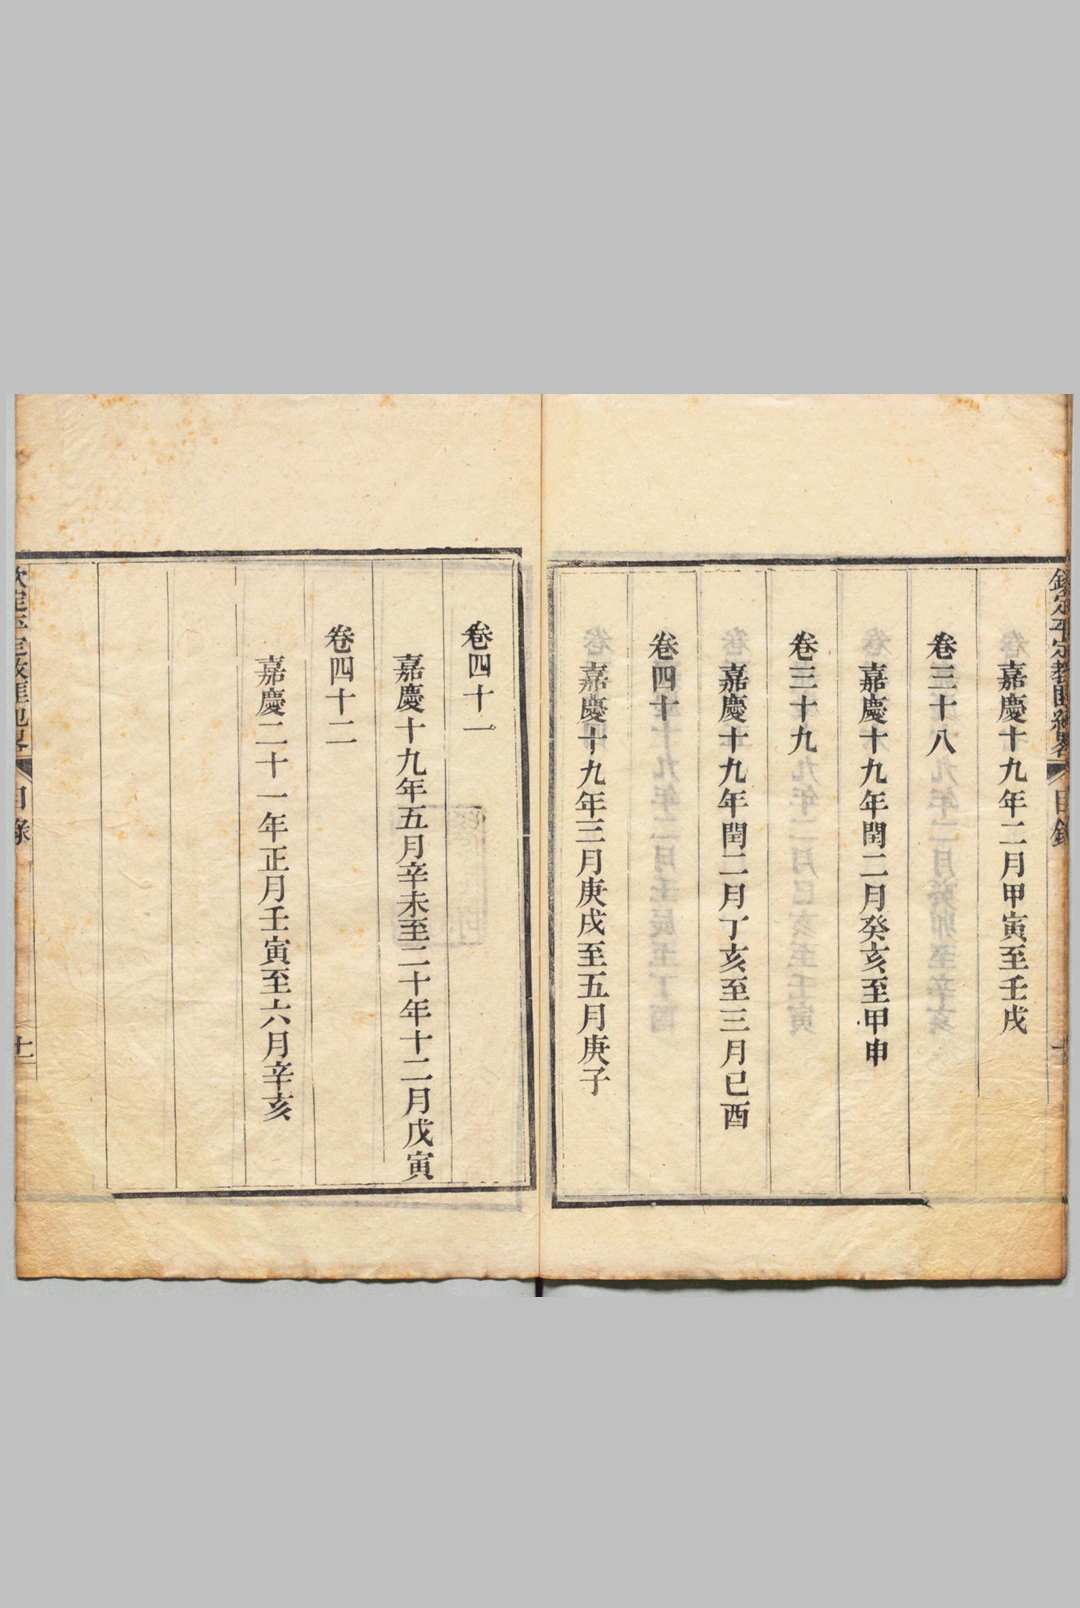 欽定平定教匪紀畧
目錄
嘉慶十九年二月甲寅至壬戌
卷三十八
嘉慶十九年閏二月癸亥至甲申
卷三十九
嘉慶十九年閏二月丁亥至三月己酉
卷四十
嘉慶十九年三月庚戌至五月庚子
卷四十一
嘉慶十九年五月辛未至二十年十二月戊寅
卷四十二
嘉慶二十一年正月壬寅至六月辛亥
欽定平定教匪紀畧
目錄
十一